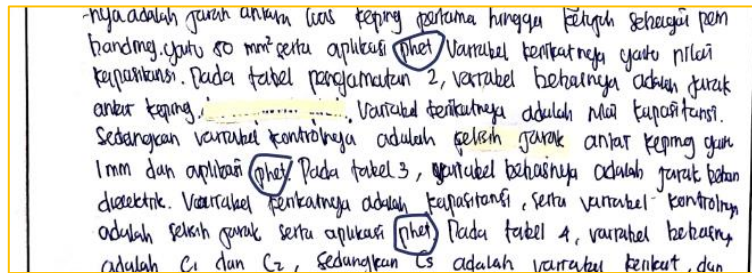 -nya adalah jarak antara luas keping pertama hingga ketujuh sebagai pem
banding. yaitu 50 mm² serta aplikasi phet Variabel terikatnya yaitu nilai
kapasitansi. Pada tabel pengamatan 2, variabel bebasnya adalah jarak
antar keping. Variabel terikatnya adalah nilai kapasitansi.
Sedangkan variabel kontrolnya adalah selisih jarak antar keping yaitu
1mm dan aplikasi phet. Pada tabel 3, variabel bebasnya adalah jarak bahan
dielektrik. Variabel terikatnya adalah kapasitansi, serta variabel kontrolnya
adalah selisih jarak serta aplikasi phet) Pada tabel 4, variabel bebasnya
adalah C1 dan C2, sedangkan Cs adalah variabel terikat, dan